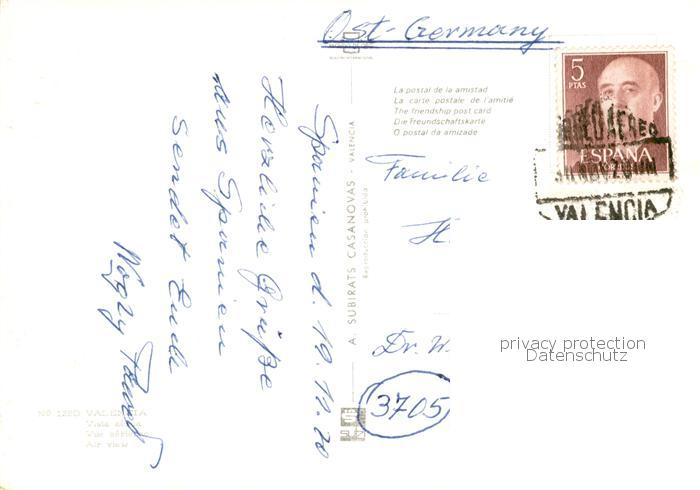 Ost-Germany
La postal de la amistad
La carte postale de l'amitié
The friendship post card
Die Freundschaftskarte
O postal da amizade
5
PTAS
ESPAÑA
CORREO AEREO
VALENCIA
Familie
H.
Dr. W.
3705
privacy protection
Datenschutz
A. SUBIRATS CASANOVAS - VALENCIA
Reproducción prohibida
Spanien d. 19.11.70
Herzliche Grüße
aus Spanien
sendet Euch
Nº 1280 VALENCIA
Vista aérea
Vue aérienne
Air view